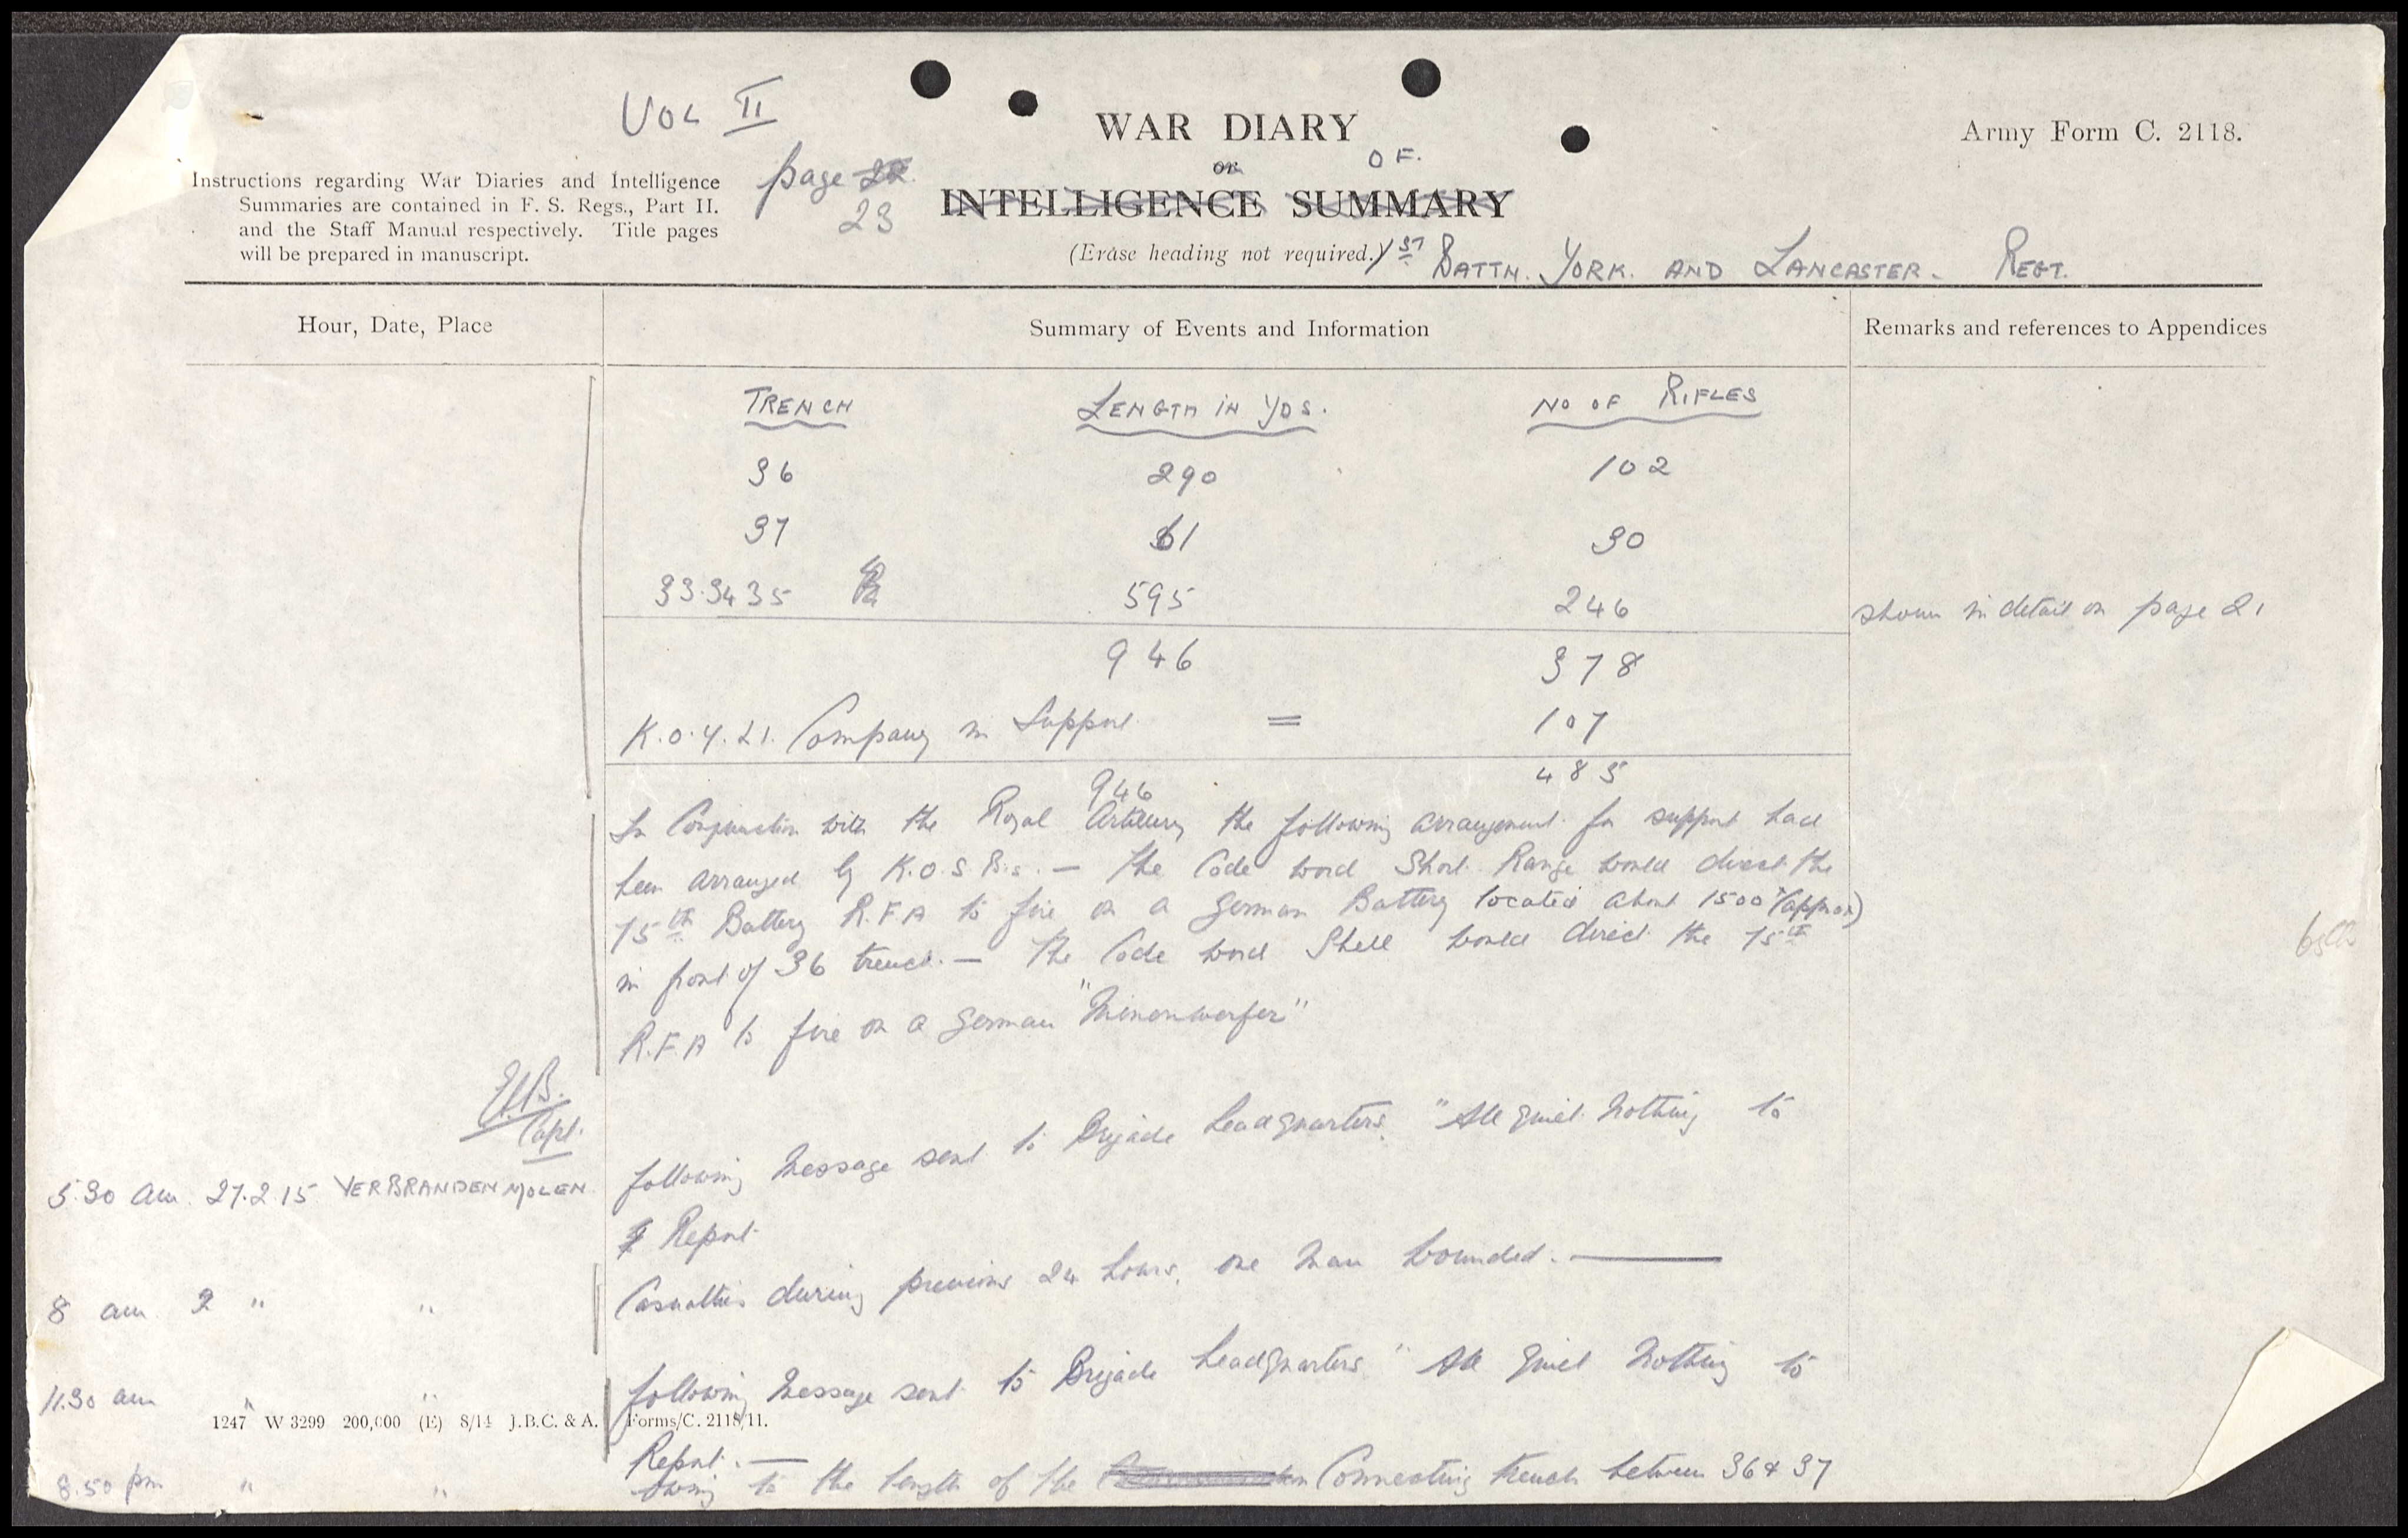 VOL II
WAR DIARY
Army Form C. 2118.
OR
OF.
page 22.
23
Instructions regarding War Diaries and Intelligence
Summaries are contained in F. S. Regs., Part II.
and the Staff Manual respectively. Title pages
will be prepared in manuscript.
INTELLIGENCE SUMMARY
(Erase heading not required.) 1ST BATTN. YORK. AND LANCASTER. REGT.
Hour, Date, Place
Summary of Events and Information
Remarks and references to Appendices
TRENCH LENGTH IN YDS. NO OF RIFLES
36 290 102
37 61 30
33.34 35 595 246 shown in detail on page 21
946 378
K.O.Y.L.I. Company in Support = 107
946 485
In Conjunction with the Royal Artillery the following arrangement for support had
been arranged by K.O.S.B.s. — The Code word Short Range would direct the
75th Battery R.F.A to fire on a German Battery located about 1500x (approx)
in front of 36 trench. — The Code word Shell would direct the 75th
R.F.A to fire on a German "Minenwerfer"
Capt.
5.30 am. 27.2.15 VERBRANDEN MOLEN. following message sent to Brigade Headquarters. "All quiet nothing to
Report
8 am 2 " " Casualties during previous 24 hours, one man wounded. —
11.30 am " " following message sent to Brigade Headquarters " All quiet nothing to
1247 W 3299 200,000 (E) 8/14 J.B.C. & A. Forms/C. 2118/11.
Report. —
8.50 pm " " Owing to the length of the Connecting trench between 36 & 37